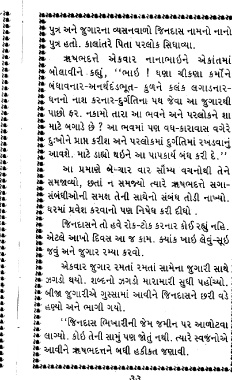 પુત્ર અને જુગારના વ્યસનવાળો જિનદાસ નામનો નાનો
પુત્ર હતો. કાલાંતરે પિતા પરલોક સિધાવ્યા.
ઋષભદત્તે એકવાર નાનાભાઇને એકાંતમાં
બોલાવીને કહ્યું, ‘‘ભાઇ ! ઘણા ચીકણા કર્મોને
બંધાવનાર-અનર્થદંડભૂત- કુળને કલંક લગાડનાર-
ધનનો નાશ કરનાર-દુર્ગતિના પથ જેવા આ જુગારથી
પાછો ફર. નકામો તારા આ ભવને અને પરલોકને શા
માટે બગાડે છે ? આ ભવમાં પણ વધ-કારાવાસ વગેરે
દુઃખોને પ્રાપ્ત કરીશ અને પરલોકમાં દુર્ગતિમાં રખડવાનું
આવશે. માટે ડાહ્યો થઇને આ પાપકાર્ય બંધ કરી દે.’’
આ પ્રમાણે બે-ચાર વાર સૌમ્ય વચનોથી તેને
સમજાવ્યો, છતાં ન સમજ્યો ત્યારે ઋષભદત્તે સગા-
સંબંધીઓની સમક્ષ તેની સાથેનો સંબંધ તોડી નાખ્યો.
ઘરમાં પ્રવેશ કરવાનો પણ નિષેધ કરી દીધો .
જિનદાસને તો હવે રોક-ટોક કરનાર કોઈ રહ્યું નહિ.
એટલે આખો દિવસ આ જ કામ. ક્યાંક ખાઇ લેવું-સૂઇ
જવું અને જુગાર રમ્યા કરવો.
એકવાર જુગાર રમતાં રમતાં સામેના જુગારી સાથે
ઝગડો થયો. શબ્દનો ઝગડો મારામારી સુધી પહોંચ્યો.
બીજા જુગારીએ ગુસ્સામાં આવીને જિનદાસને છરી વડે
હણ્યો અને ભાગી ગયો.
‘‘જિનદાસ ભિખારીની જેમ જમીન પર આળોટવા
લાગ્યો. કોઇ તેની સામું પણ જોતું નથી. ત્યારે સ્વજનોએ
આવીને ઋષભદત્તને બધી હકીકત જણાવી.